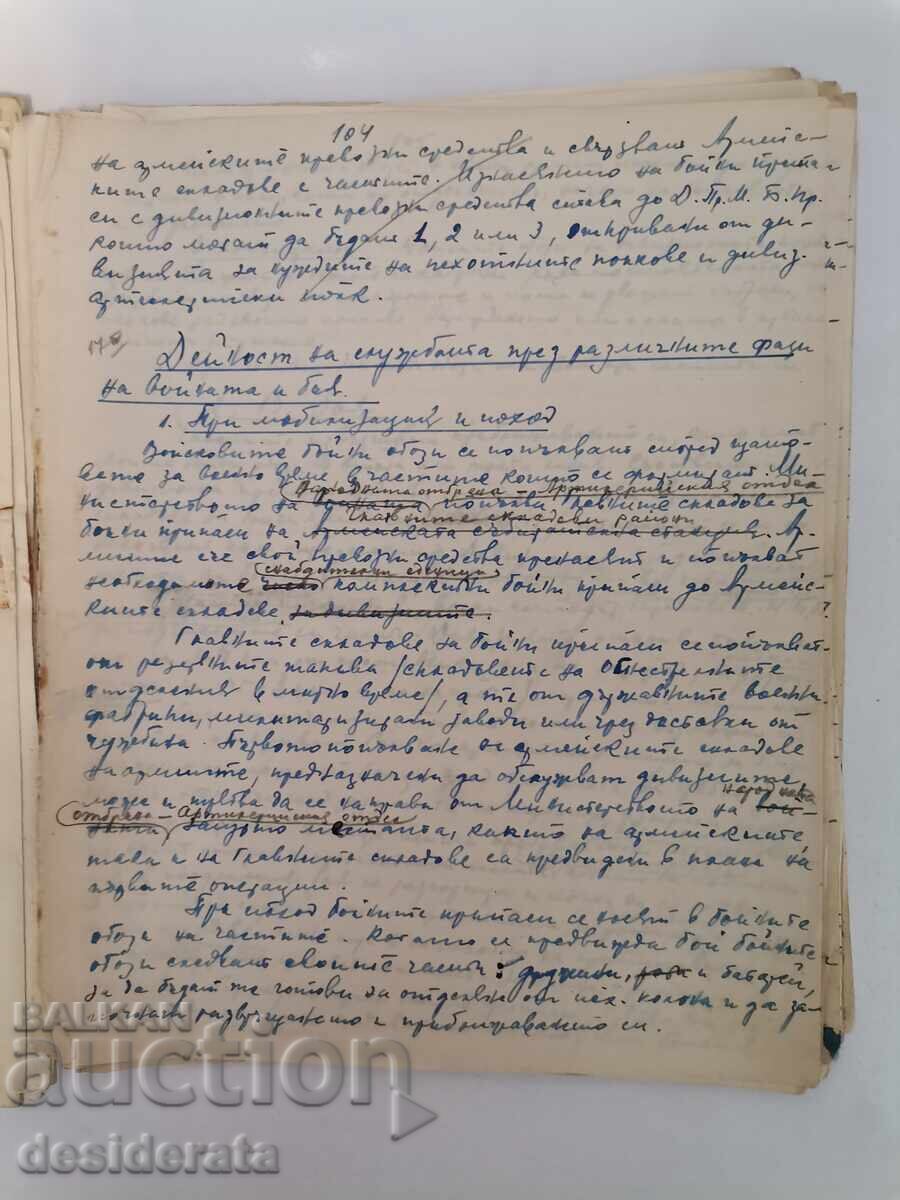 104
на армейските превозни средства и свързват Армейс-
ките складове с частите. Изнасянето на бойни припа-
си с дивизионните превозни средства става до Д. Пр. М. Б. Пр.
които могат да бъдат 1, 2 или 3, откривани от ди-
визията за нуждите на пехотните полкове и дивиз.
артилерийски полк.
Дейност на службата през различните фази
на войната и боя.
1. При мобилизация и поход
Войсковите бойни обози се попълват според щато-
вете за военно време в частите които се формират. Ми-
Народната отбрана – Артилерийския отдел
нистерството на войната попълва Главните складове за
Главните складови райони
бойни припаси на Армейската станция. Ар-
миите със свои превозни средства пренасят и попълват
снабдителни единици
необходимите число комплектни бойни припаси до Армейс-
ките складове за дивизиите.
Главните складове за бойни припаси се попълват
от резервните такива /складовете на
отделения в мирно време/, а те от държавните военни
фабрики, милитаризирани заводи или чрез доставки от
чужбина. Първото попълване на армейските складове
на армиите, предназначени да обслужват дивизиите,
може и трябва да се направи от Министерството на вой-
народната
отбрана – Артилерийския отдел
ната защото местата, както на армейските
така и на Главните складове са предвидени в плана на
първите операции.
При поход бойните припаси се носят в бойните
обози на частите. Когато се предвижда бой бойните
обози следват своите части: дружини, и батареи,
за да бъдат те готови за отделяне от пех. колона и да за-
почнат развръщането и приближаването си.
BALKAN
auction
desiderata